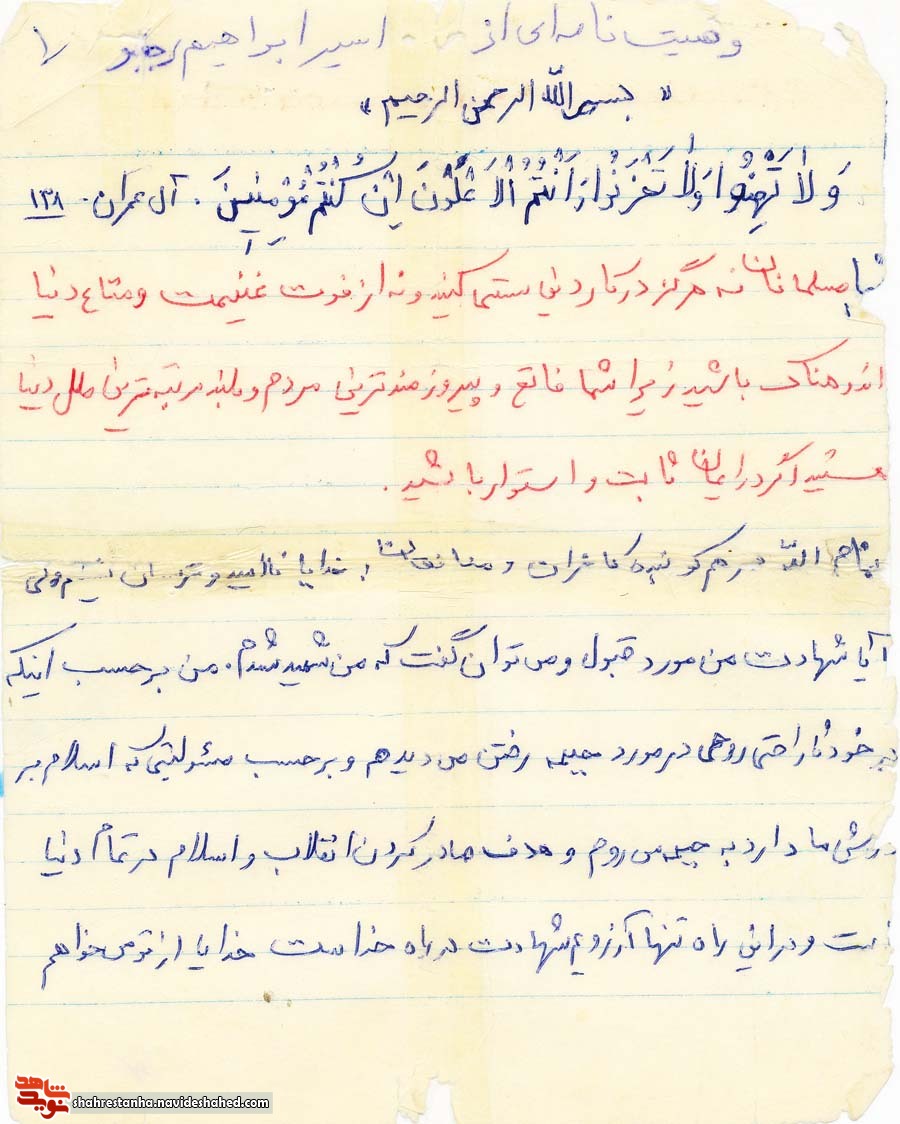 وصیت نامه ای از اسیر ابراهیم رجبر
۱
«بسم الله الرحمن الرحیم»
وَلاٰ تَهِنُوا وَلاٰ تَحْزَنُوا وَاَنْتُمُ الْاَعْلَوْنَ اِنْ كُنْتُمْ مُؤْمِنینَ . آل عمران . ۱۳۸
شما مسلمانان نه هرگز در کار دین سستی کنید و نه از فوت غنیمت و متاع دنیا
اندوهناک باشید زیرا شما فاتح و پیروزمندترین مردم و بلند مرتبه ترین ملل دنیا
هستید اگر در ایمان ثابت و استوار باشید .
بنام الله درهم کوبنده کافران و منافقان ، خدایا ناامید و ترسان نیستم ولی
آیا شهادت من مورد قبول و می توان گفت که من شهید شدم . من بر حسب اینکه
در خود ناراحتی روحی در مورد جبهه رفتن می دیدم و بر حسب مسئولیتی که اسلام بر
دوش ما دارد به جبهه می روم و هدف صادر کردن انقلاب و اسلام در تمام دنیا
است و در این راه تنها آرزویم شهادت در راه خداست خدایا از تو می خواهم
نوید شاهد
shahrestanha.navideshahed.com